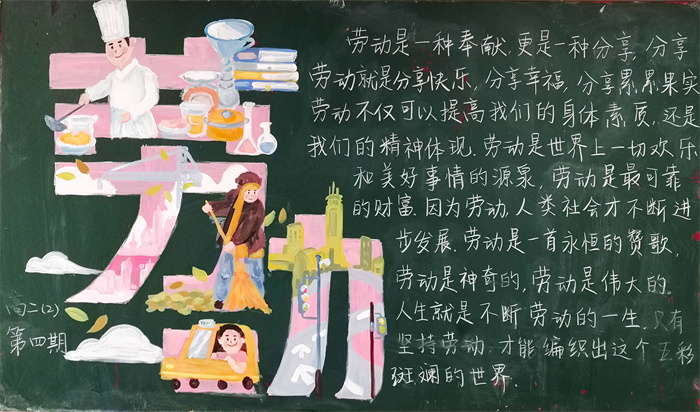 劳动
劳动是一种奉献,更是一种分享,分享
劳动就是分享快乐,分享幸福,分享累累果实
劳动不仅可以提高我们的身体素质,还是
我们的精神体现.劳动是世界上一切欢乐
和美好事情的源泉,劳动是最可靠
的财富.因为劳动,人类社会才不断进
步发展.劳动是一首永恒的赞歌,
劳动是神奇的,劳动是伟大的.
人生就是不断劳动的一生.只有
坚持劳动,才能编织出这个五彩
斑斓的世界.
向二(2)
第四期
TAXI